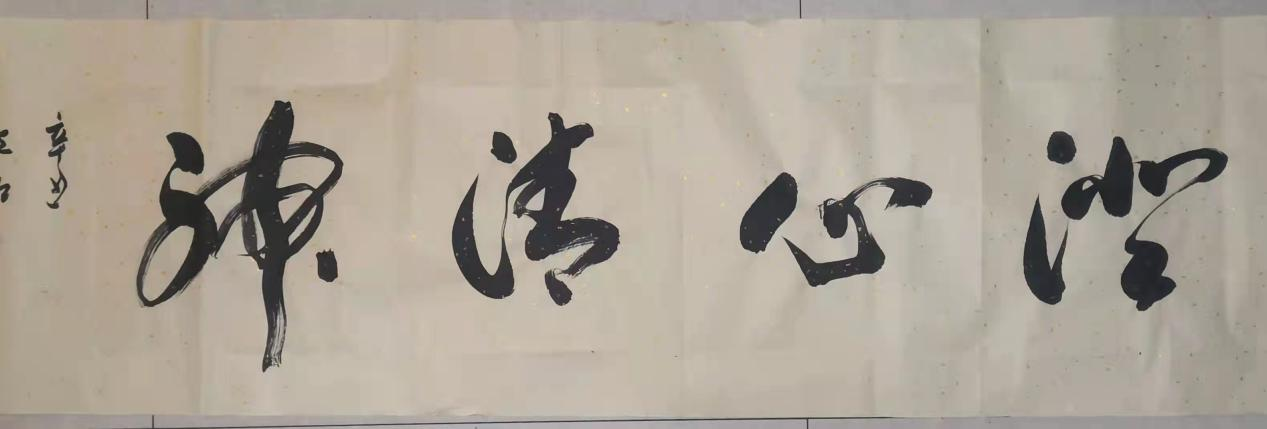 澄心清神
辛丑